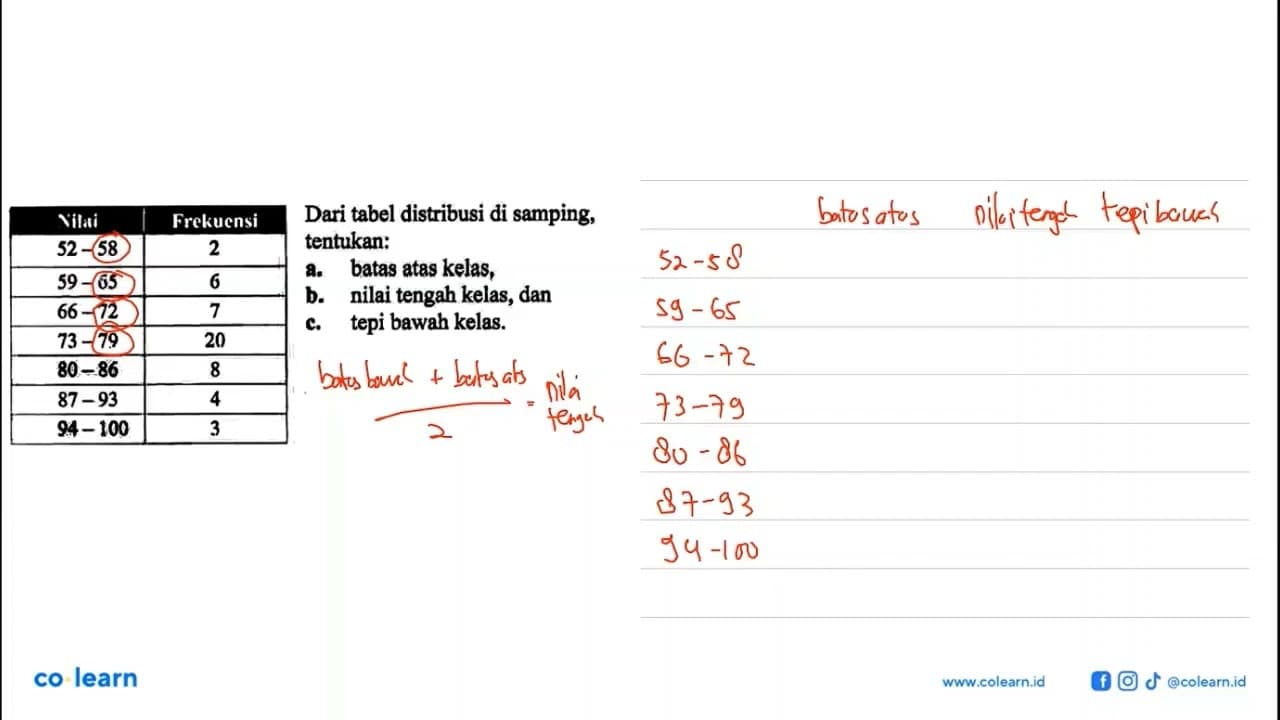 Nilai Frekuensi
52 – 58 2
59 – 65 6
66 – 72 7
73 – 79 20
80 – 86 8
87 – 93 4
94 – 100 3
Dari tabel distribusi di samping,
tentukan:
a. batas atas kelas,
b. nilai tengah kelas, dan
c. tepi bawah kelas.
batas bawah + batas atas = nilai
2 tengah
batas atas nilai tengah tepi bawah
52 - 58
59 - 65
66 - 72
73 - 79
80 - 86
87 - 93
94 - 100
co learn
www.colearn.id @colearn.id